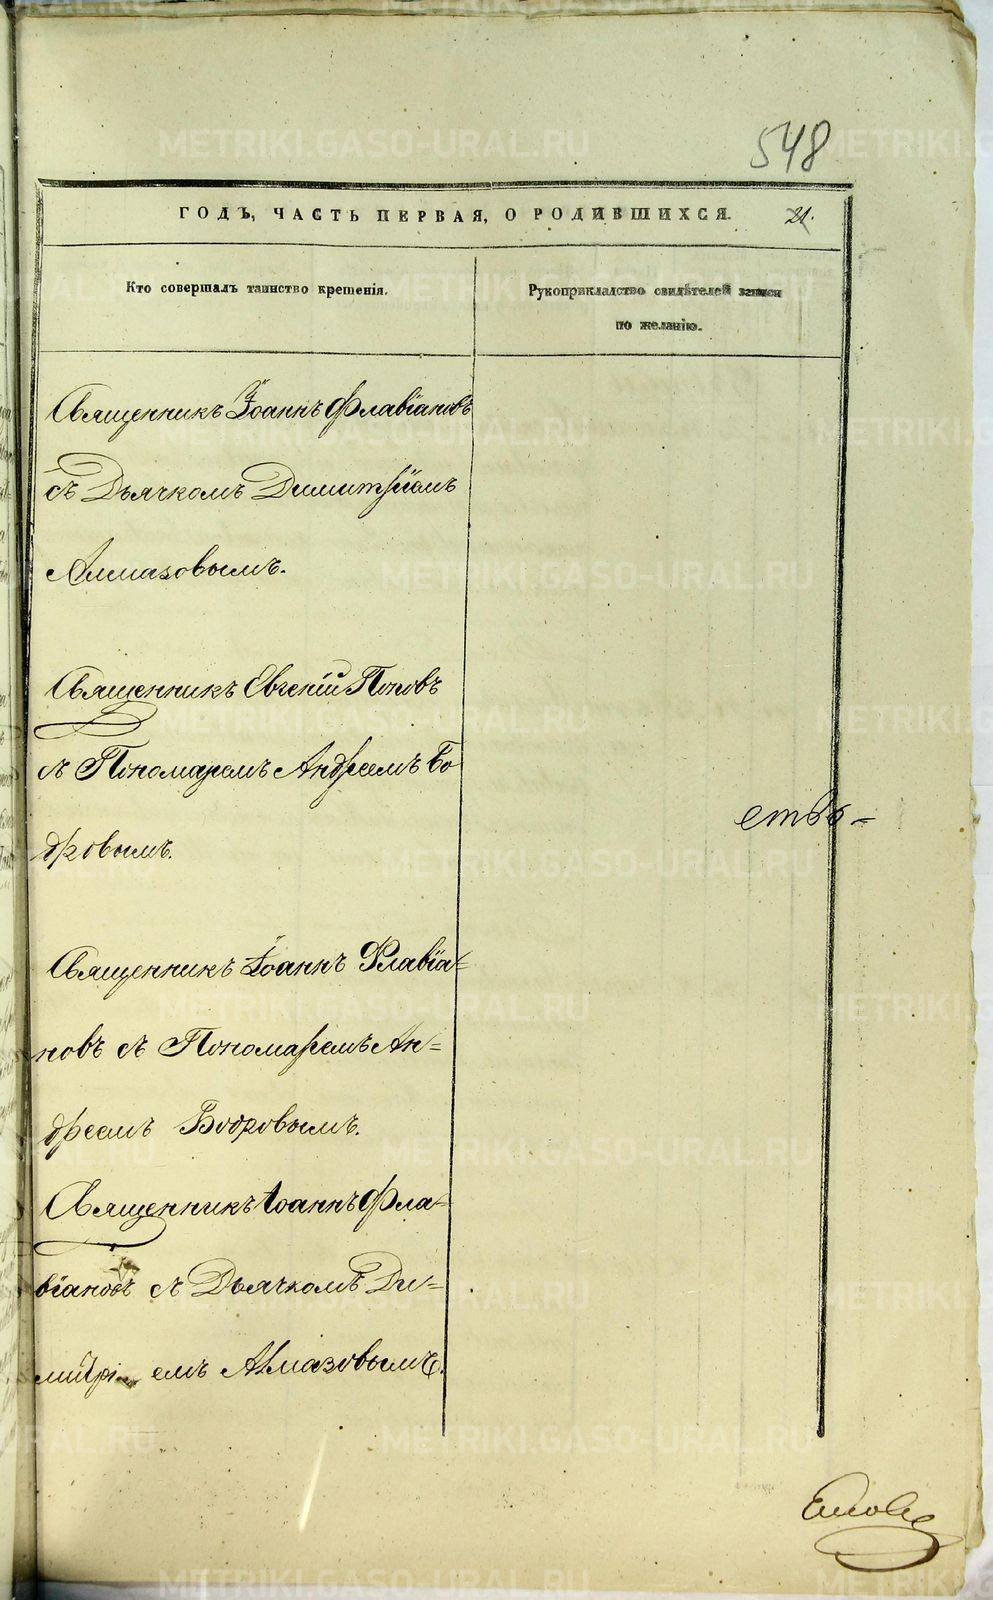 548
ГОДЪ, ЧАСТЬ ПЕРВАЯ, О РОДИВШИХСЯ. 21.
Кто совершалъ таинство крещенія.
Рукоприкладство свидѣтелей записи
по желанію.
Священникъ Іоаннъ Флавіановъ
съ Дьячкомъ Димитріемъ
Алмазовымъ.
Священникъ Евгеній Поповъ
съ Пономаремъ Андреемъ Бо
дровымъ.
Священникъ Іоаннъ Флавіа=
новъ съ Пономаремъ Ан=
дреемъ Бодровымъ.
Священникъ Іоаннъ Фла=
віановъ съ Дьячкомъ Ди=
митріемъ Алмазовымъ.
METRIKI.GASO-URAL.RU